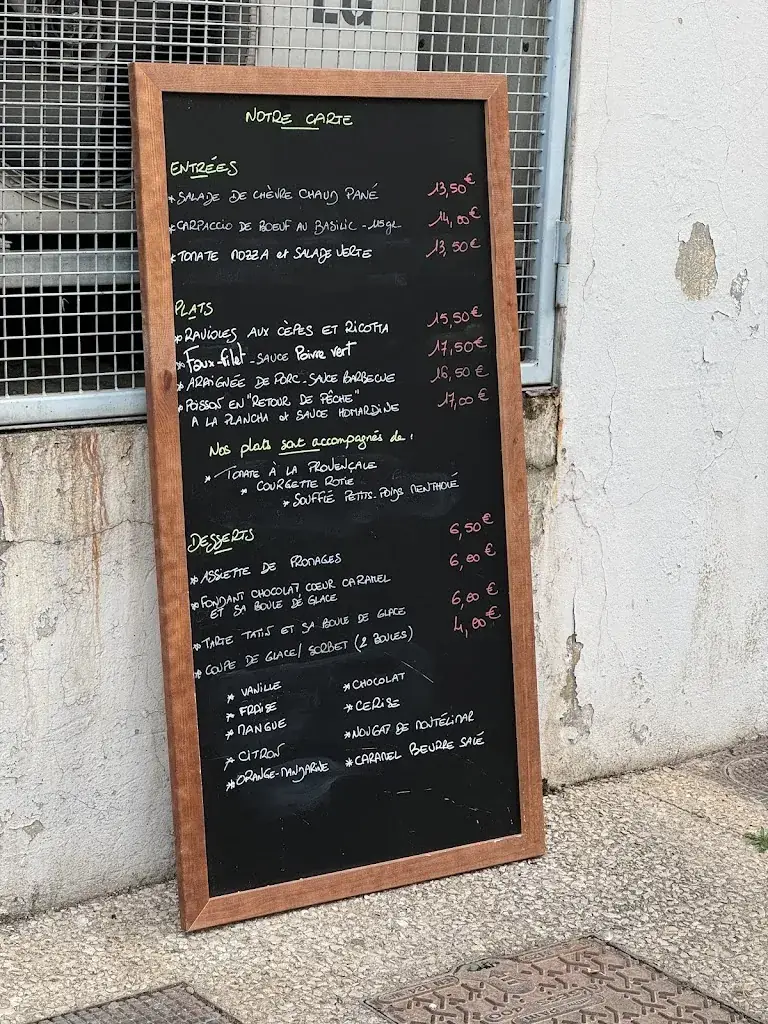 LG
NOTRE CARTE
ENTRÉES
*SALADE DE CHÈVRE CHAUD PANÉ 13,50€
*CARPACCIO DE BOEUF AU BASILIC - 115gr 14,00€
*TOMATE MOZZA et SALADE VERTE 13,50€
PLATS
*RAVIOLES AUX CÈPES ET RICOTTA 15,50€
*Faux-filet - SAUCE Poivre vert 17,50€
*ARAIGNÉE DE PORC - SAUCE BARBECUE 16,50€
*POISSON EN "RETOUR DE PÊCHE" 17,00€
A LA PLANCHA et SAUCE HOMARDINE
Nos plats sont accompagnés de :
* TOMATE À LA PROVENÇALE
* COURGETTE ROTIE
* SOUFFLÉ PETITS-POIS MENTHOLÉ
DESSERTS
*ASSIETTE DE FROMAGES 6,50€
*FONDANT CHOCOLAT, COEUR CARAMEL 6,00€
ET SA BOULE DE GLACE
*TARTE TATIN ET SA BOULE DE GLACE 6,00€
*COUPE DE GLACE/ SORBET (2 BOULES) 4,00€
* VANILLE *CHOCOLAT
* FRAISE *CERISE
* MANGUE *NOUGAT DE MONTÉLIMAR
* CITRON *CARAMEL BEURRE SALÉ
*ORANGE-MANDARINE